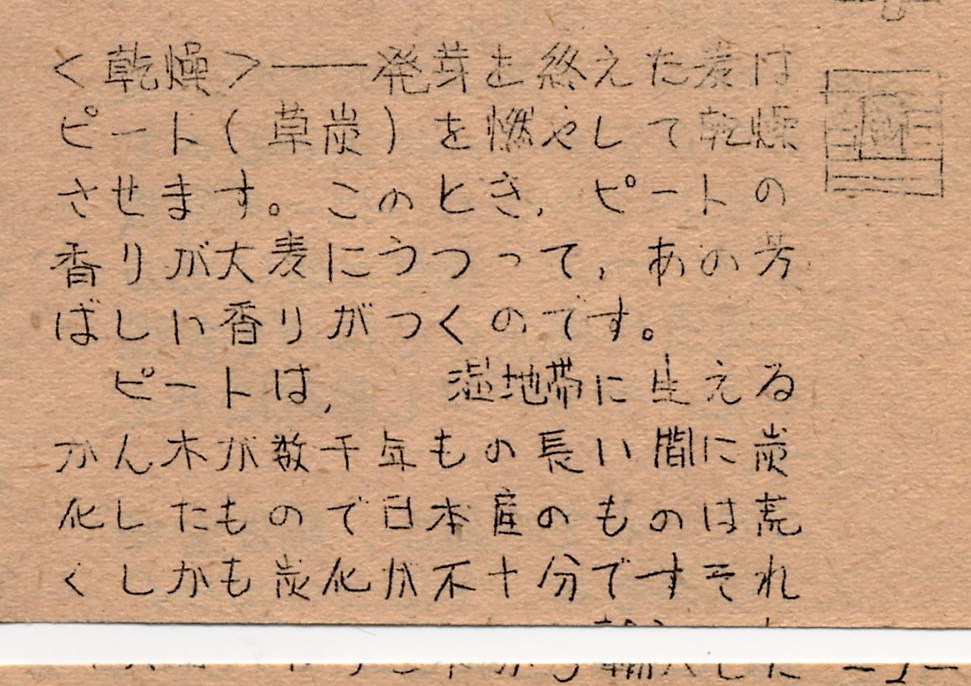 ＜乾燥＞――発芽を終えた麦は
ピート(草炭)を燃やして乾燥
させます。このとき，ピートの
香りが大麦にうつって，あの芳
ばしい香りがつくのです。
ピートは，　湿地帯に生える
かん木が数千年もの長い間に炭
化したもので日本産のものは荒
くしかも炭化が不十分ですそれ
から輸入した